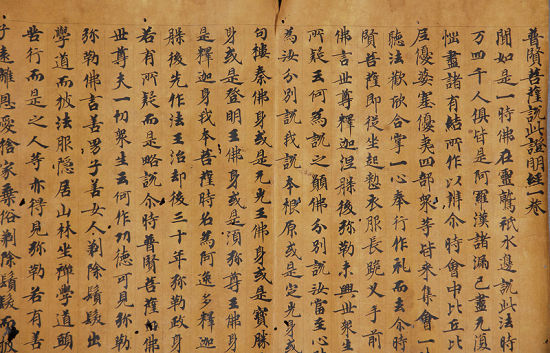 普賢菩薩說此證明經一卷
聞如是一時佛在靈鷲祇水邊說此法時
万四千人俱皆是阿羅漢諸漏已盡无復
惱盡諸有結所作以辦尒時會中比丘比
丘優婆塞優夷四部衆等皆來集會一
聽法歡欣合掌一心奉行作礼而去尒時
賢菩薩即從坐起衣服長跪叉手前
佛言世尊釋迦涅槃後弥勒未興世衆生
所疑云何為說之願佛分別說汝當至心
為汝分別說我說本根原或是定光身或
句樓秦佛身或是无光王佛身或是寶勝
身或是登明王佛身或是須弥尊王佛身
是釋迦身我本菩薩時名為阿逸多釋迦
槃後先作法王治却後三十年弥勒政身
若有所疑而是略說尒時普賢菩薩佛
世尊夫一切衆生云何作功德可見弥勒
弥勒佛言善男子善女人剃除鬚髮出
學道而被法服隱居山林坐禪學道頭
苦行而是之人等亦得見弥勒若有善
子遠離恩愛捨家棄俗剃除鬚髮而被